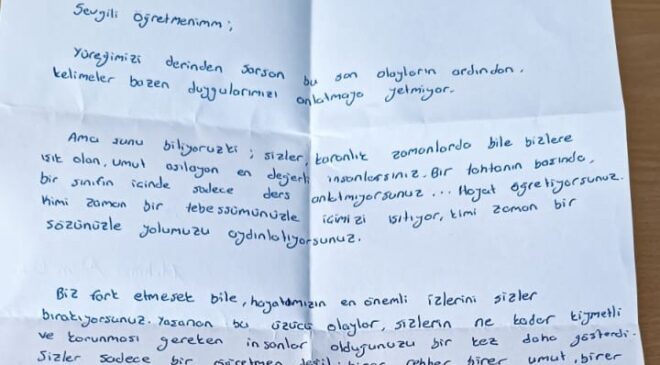 Sevgili Öğretmenimm;
Yüreğimizi derinden sarsan bu son olayların ardından,
kelimeler bazen duygularımızı anlatmaya yetmiyor.
Ama şunu biliyoruzki; sizler, karanlık zamanlarda bile bizlere
ışık olan, umut aşılayan en değerli insanlarsınız. Bir tahtanın başında,
bir sınıfın içinde sadece ders anlatmıyorsunuz... Hayat öğretiyorsunuz.
Kimi zaman bir tebessümünüzle içimizi ısıtıyor, kimi zaman bir
sözünüzle yolumuzu aydınlatıyorsunuz.
Biz fark etmesek bile, hayatımızın en önemli izlerini sizler
bırakıyorsunuz. Yaşanan bu üzücü olaylar, sizlerin ne kadar kıymetli
ve korunması gereken insanlar olduğunuzu bir kez daha gösterdi.
Sizler sadece bir öğretmen değil; birer rehber birer umut, birer